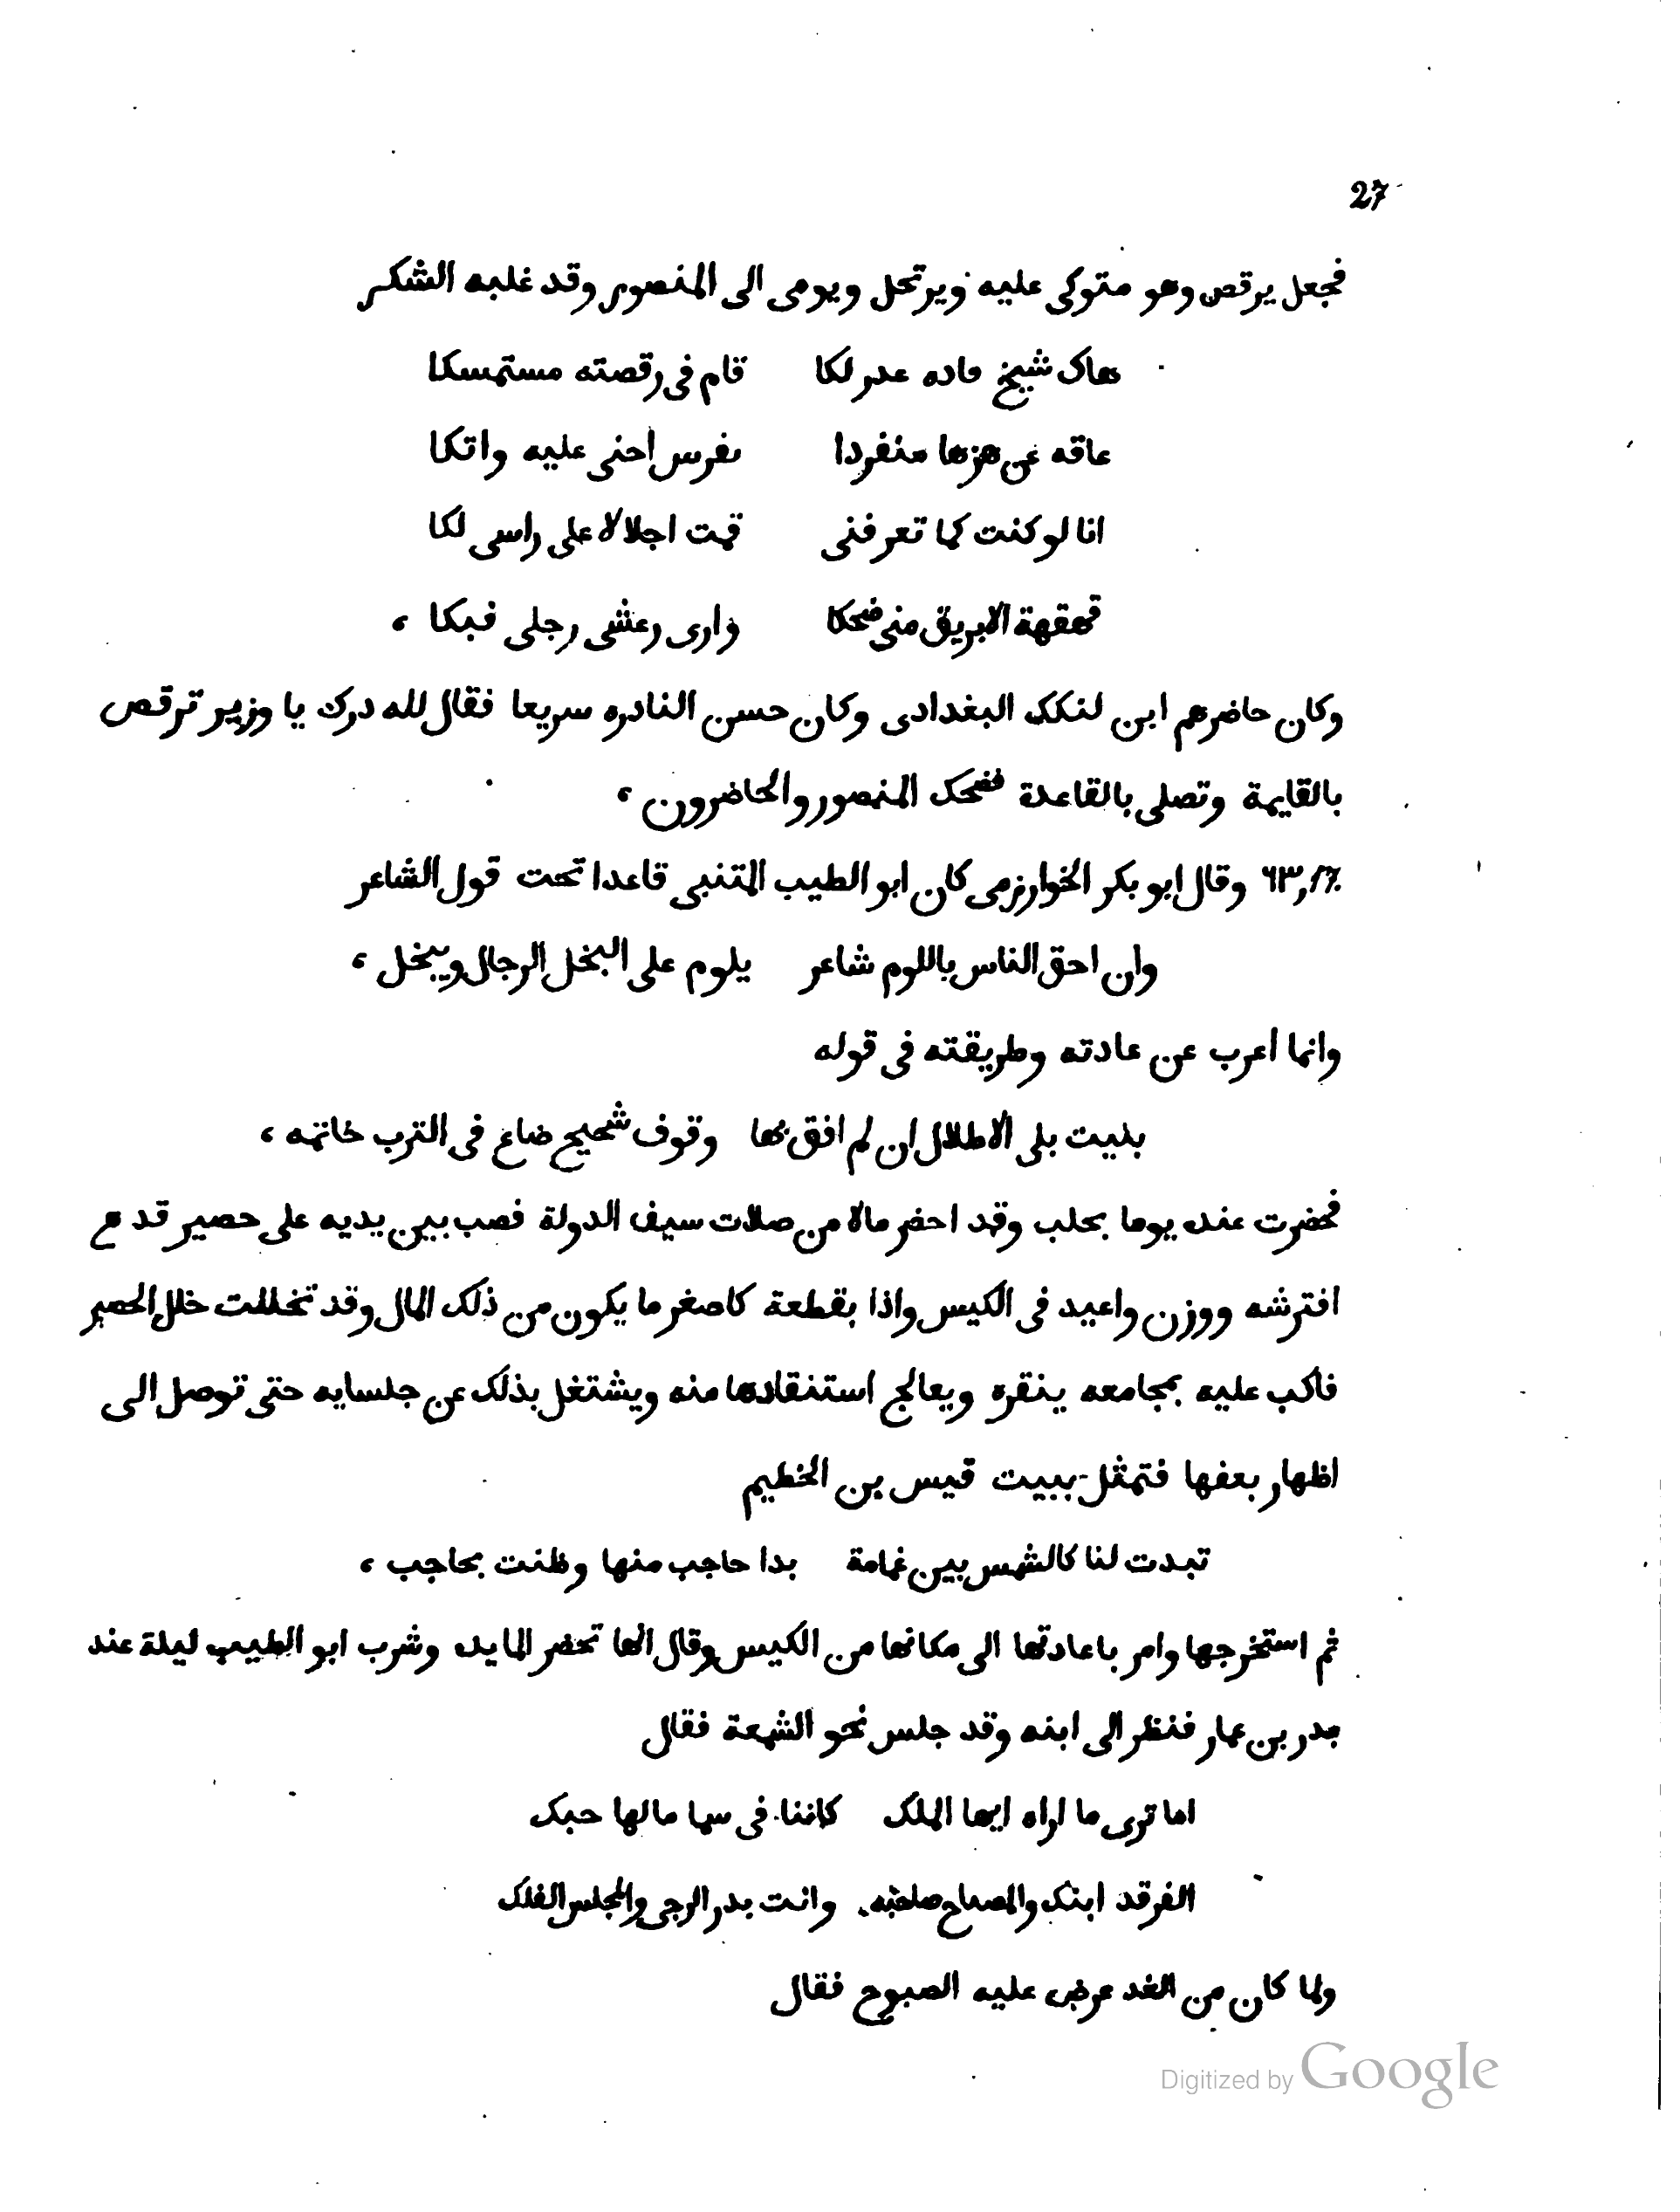 27
فجعل يرقص وهو متوكى عليه ويرتحل ويومى الى المنصور وقد غلبه الشكر
هاك شيخ قاده عدر لكا قام فى رقصته مستمسكا
عاقه عن هزها منفردا نفرس احنى عليه واتكا
انا لو كنت كما تعرفنى قمت اجلالا على راسى لكا
قهقهة الابريق منى ضحكا وارى رعشى رجلى فبكا ،
وكان حاضرهم ابن لنكك البغدادى وكان حسن النادره سريعا فقال لله درك يا وزير ترقص
بالقايمة وتصلى بالقاعدة فضحك المنصور والحاضرون ،
وقال ابو بكر الخوارزمى كان ابو الطيب المتنبى قاعدا تحت قول الشاعر
وان احق الناس باللوم شاعر يلوم على البخل الرجال ويبخل ،
وانما اعرب عن عادته وطريقته فى قوله
بليت بلى الاطلال ان لم افق بها وقوف شحيح ضاع فى الترب خاتمه ،
فحضرت عنده يوما بحلب وقد احضر مالا من صلات سيف الدولة فصب بين يديه على حصير قد
افترشه ووزن واعيد فى الكيس واذا بقطعة كاصغر ما يكون من ذلك المال وقد تخللت خلل الحصير
فاكب عليه بمجامعه ينقره ويعالج استنقادها منه ويشتغل بذلك عن جلسايه حتى توصل الى
اظهار بعضها فتمثل ببيت قيس بن الخطيم
تبدت لنا كالشمس بين غمامة بدا حاجب منها وظنت بحاجب ،
ثم استخرجها وامر باعادتها الى مكانها من الكيس وقال انها تحضر المايده وشرب ابو الطيب ليلة عند
بدر بن عمار فنظر الى ابنه وقد جلس نحو الشمعة فقال
اما ترى ما اراه ايها الملك كاننا فى سما مالها حبك
الفرقد ابنك والمصباح صاحبه وانت بدر الرجى والمجلس الفلك
ولما كان من الغد عرض عليه الصبوح فقال
Digitized by Google